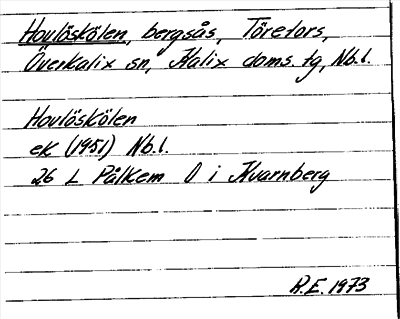 Hovlöskölen, bergsås, Töretors,
Överkalix sn, Kalix doms. tg, Nb.l.
Hovlöskölen
ek (1951) Nb.l.
26 L Pålkem O i Kvarnberg
R.E. 1973